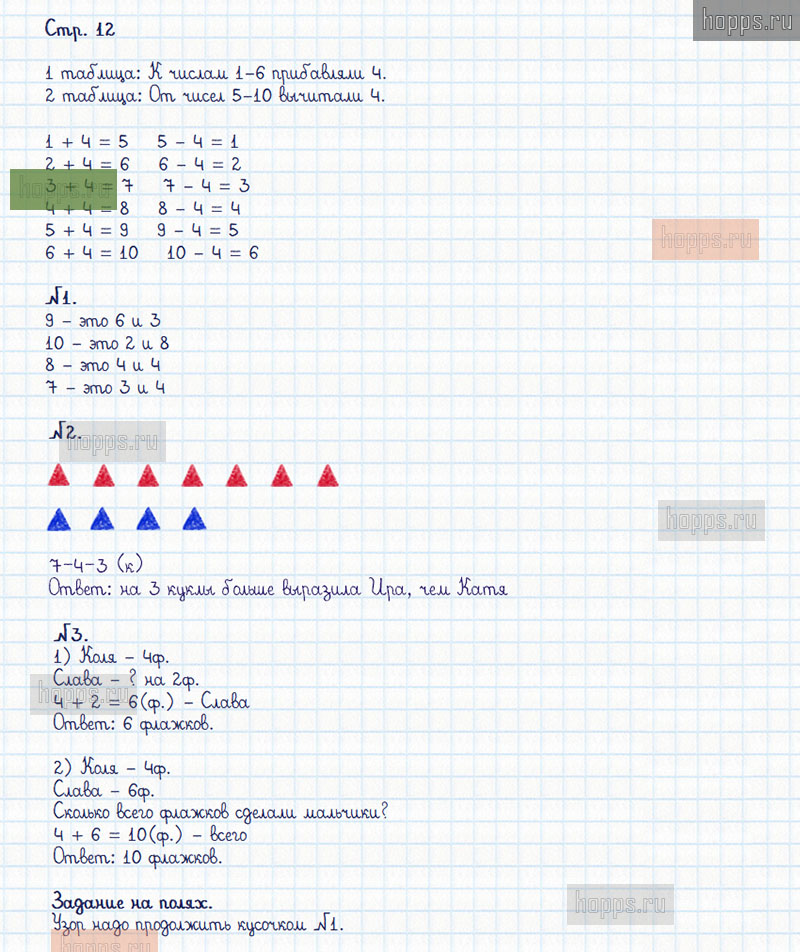 hopps.ru
Стр. 12
1 таблица: К числам 1-6 прибавляли 4.
2 таблица: От чисел 5-10 вычитали 4.
1 + 4 = 5 5 - 4 = 1
2 + 4 = 6 6 - 4 = 2
hopps.ru
3 + 4 = 7 7 - 4 = 3
4 + 4 = 8 8 - 4 = 4
5 + 4 = 9 9 - 4 = 5
hopps.ru
6 + 4 = 10 10 - 4 = 6
№1.
9 - это 6 и 3
10 - это 2 и 8
8 - это 4 и 4
7 - это 3 и 4
№2.
hopps.ru
hopps.ru
7-4-3 (к)
Ответ: на 3 куклы больше выразила Ира, чем Катя
№3.
1) Коля - 4ф.
Слава - ? на 2ф.
hopps.ru
4 + 2 = 6(ф.) - Слава
Ответ: 6 флажков.
2) Коля - 4ф.
Слава - 6ф.
Сколько всего флажков сделали мальчики?
4 + 6 = 10(ф.) - всего
Ответ: 10 флажков.
Задание на полях.
hopps.ru
Узор надо продолжить кусочком №1.
hopps.ru